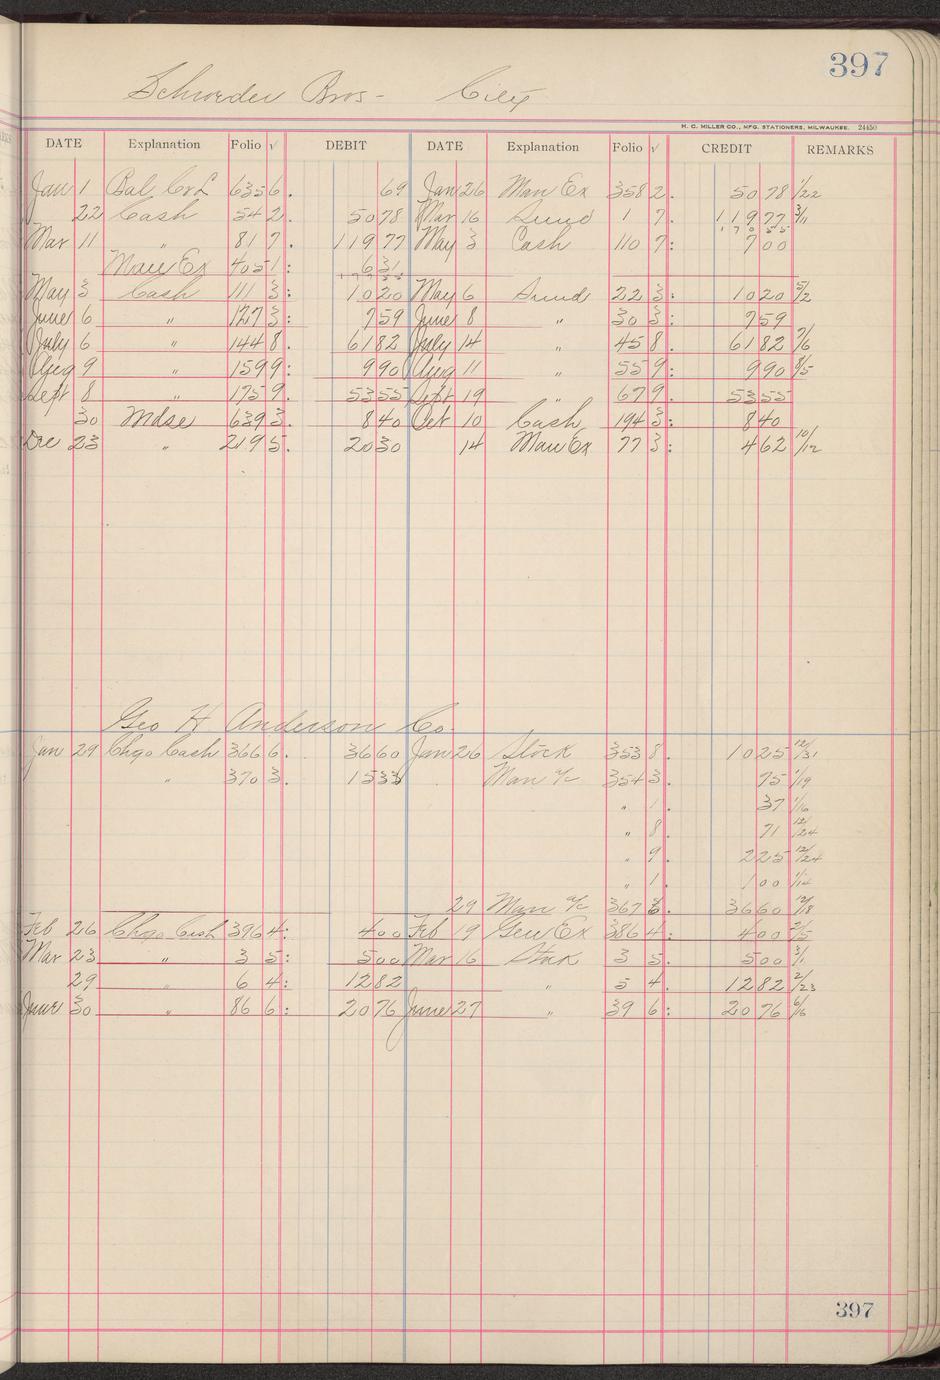 397
Schroeder Bros - City
H. C. MILLER CO., MFG. STATIONERS, MILWAUKEE. 24450
DATE Explanation Folio √ DEBIT DATE Explanation Folio √ CREDIT REMARKS
Jan 1 Bal Cr L 635 6. 69 Jan 26 Man Ex 358 2. 50 78 1/22
22 Cash 54 2. 50 78 Mar 16 Sund 1 7. 119 77 3/11
Mar 11 " 81 7. 119 77 May 3 Cash 110 7: 7 00
Man Ex 405 1: 6 31
May 3 Cash 111 3: 10 20 May 6 Sund 22 3: 10 20 5/2
June 6 " 127 3: 7 59 June 8 " 30 3: 7 59
July 6 " 144 8. 61 82 July 14 " 45 8. 61 82 7/6
Aug 9 " 159 9: 9 90 Aug 11 " 55 9: 9 90 8/5
Sept 8 " 175 9. 53 55 Sept 19 " 67 9. 53 55
30 Mdse 639 3. 8 40 Oct 10 Cash 194 3: 8 40
Dec 23 " 219 5. 20 30 14 Man Ex 77 3: 4 62 10/12
Geo H Anderson Co.
Jan 29 Chgo Cash 366 6. 36 60 Jan 26 Stock 353 8. 10 25 12/31
" 370 3. 15 33 Man a/c 354 3. 75 1/19
" 1. 37 1/16
" 8. 71 12/24
" 9. 2 25 12/24
" 1. 1 00 1/14
29 Man a/c 367 6. 36 60 12/18
Feb 26 Chgo Cash 396 4: 4 00 Feb 19 Gen Ex 386 4. 4 00 2/5
Mar 23 " 3 5: 5 00 Mar 16 Stock 3 5. 5 00 3/1
29 " 6 4: 12 82 " 5 4. 12 82 2/23
June 30 " 86 6: 20 76 June 27 " 39 6: 20 76 6/16
397